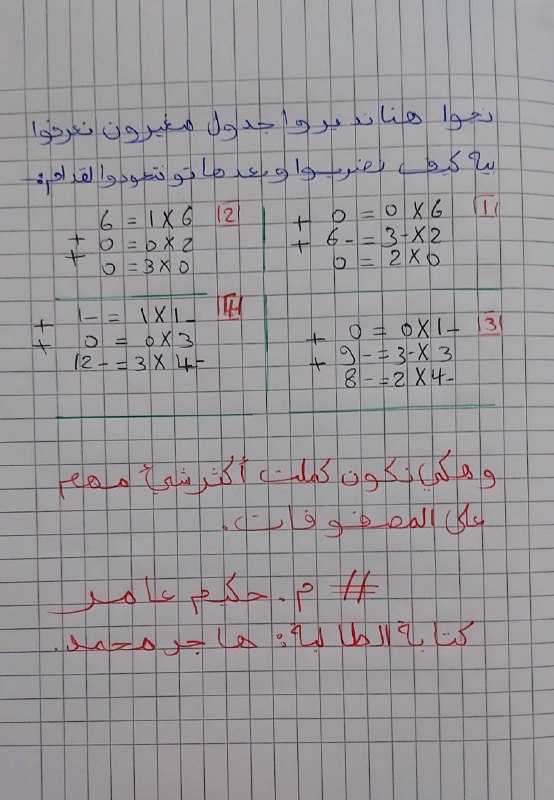 نحوا هنا نديروا جدول صغيرون نعرفوا
بيه كيف نضربوا وبعدها تو تتعودوا لقدام:
1 2
+ 0 = 0 X 6
+ 6- = 3- X 2
0 = 2 X 0
6 = 1 X 6
+ 0 = 0 X 2
+ 0 = 3 X 0
3 4
+ 0 = 0 X 1-
+ 9- = 3- X 3
8- = 2 X 4-
+ 1- = 1 X 1-
+ 0 = 0 X 3
12- = 3 X 4-
وهكي نكون كملت أكثر شيء مهم
على المصفوفات.
# م. حكيم عامر
كتابة الطالبة: هاجر محمد.